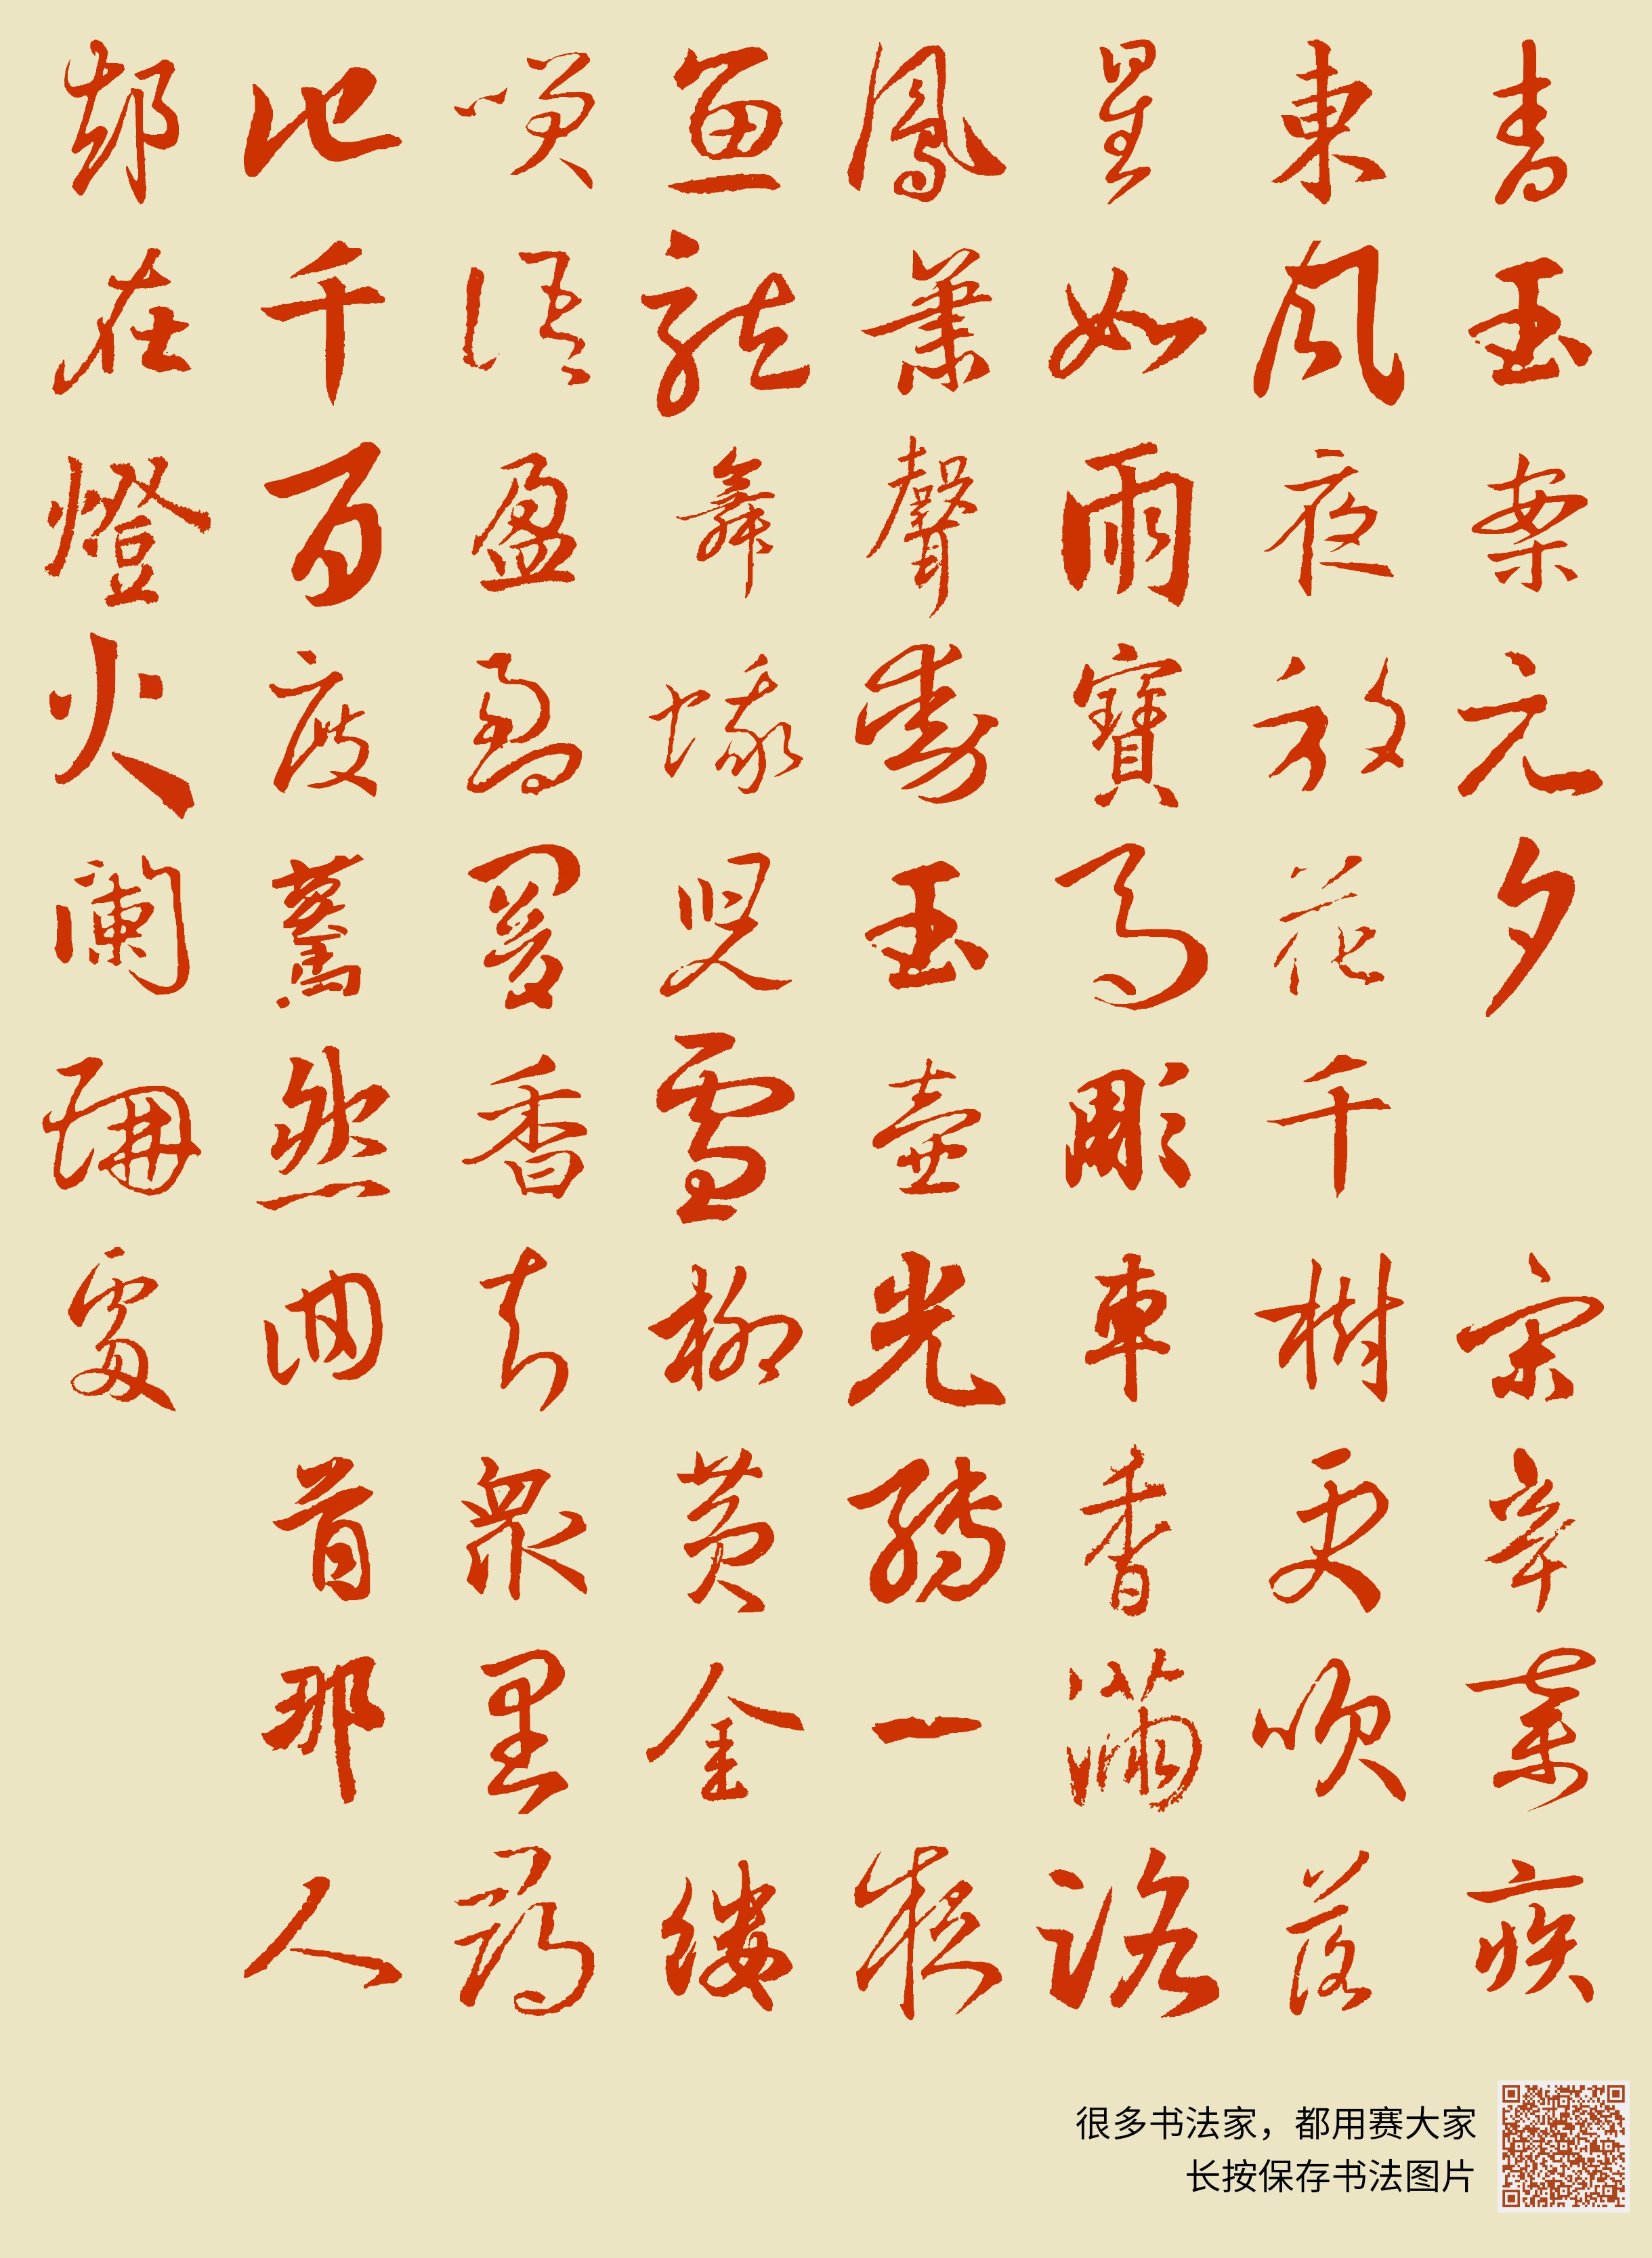 青玉案元夕 宋辛棄疾
東風夜放花千樹更吹落
星如雨寶馬彫車香滿路
鳳簫聲動玉壺光轉一夜
魚龍舞蛾兒雪柳黃金縷
咲語盈盈闇香去眾里尋
他千百度驀然回首那人
却在燈火闌珊處
很多书法家，都用赛大家
长按保存书法图片